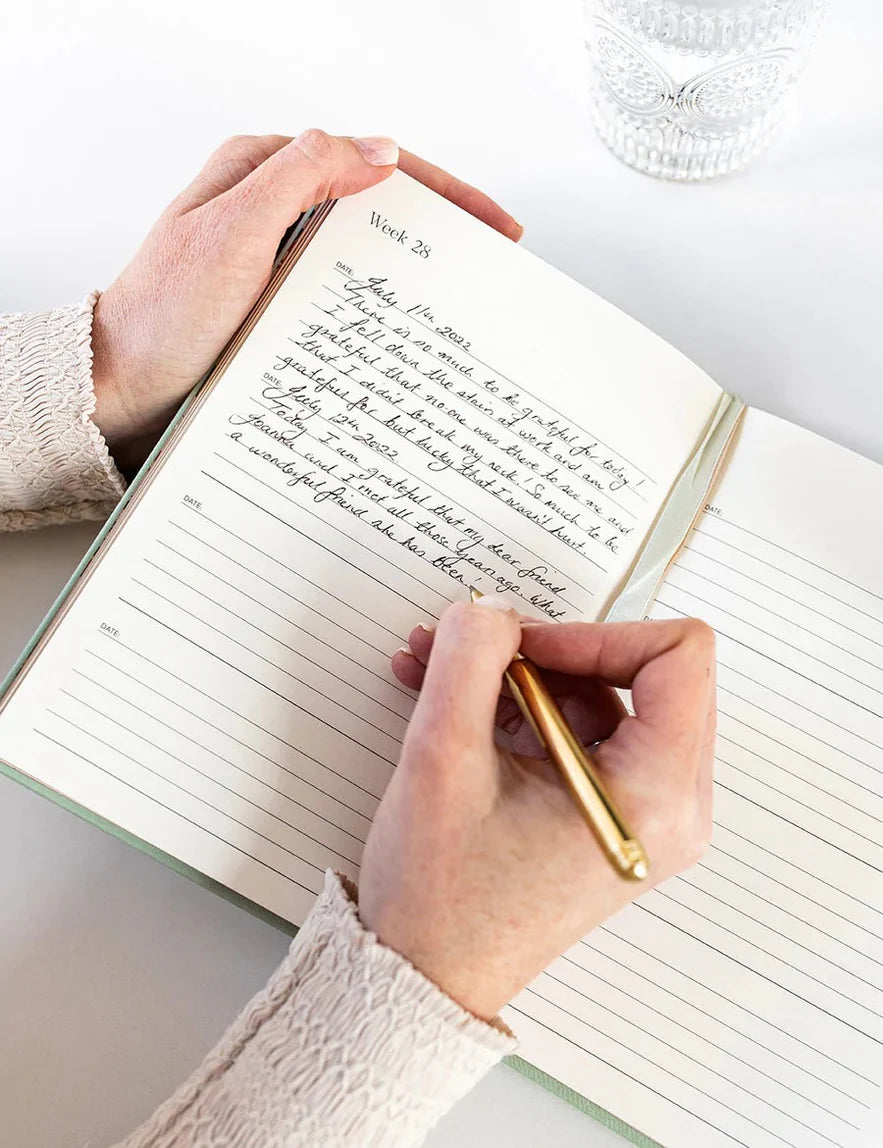 Week 28
DATE: July 11th 2022
There is so much to be grateful for today!
I fell down the stairs at work and am
grateful that no one was there to see me and
that I didn't break my neck! So much to be
grateful for but lucky that I wasn't hurt.
DATE: July 12th 2022
Today I am grateful that my dear friend
Joanna and I met all those years ago. What
a wonderful friend she has been!
DATE:
DATE:
DATE: